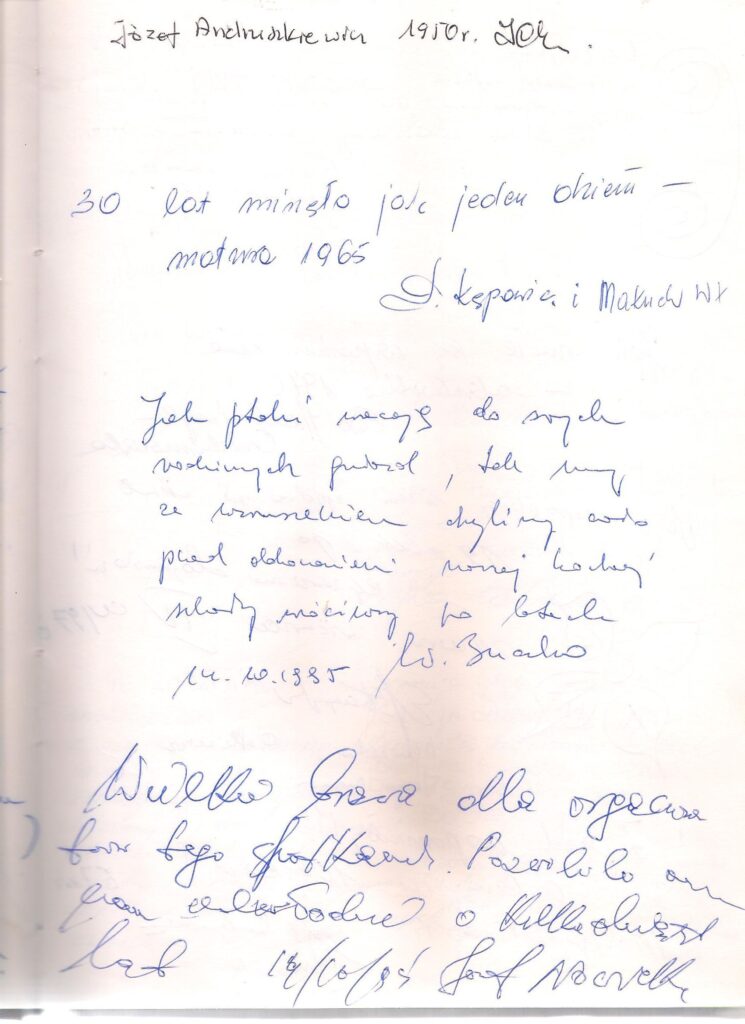 Józef Andruszkiewicz 1950r.
30 lat minęło jak jeden dzień —
matura 1965
i Maluch Wł
Jak ptaki wracają do swych
rodzinnych gniazd, tak my
ze wzruszeniem chylimy czoła
przed dokonaniami naszej kochanej
szkoły wróciwszy po latach
14.10.1995 W.
Wielkie brawa dla organiza
torów tego spotkania. Pozwoliło ono
nam odmłodnieć o kilkadziesiąt
lat 14/10/95 Józef